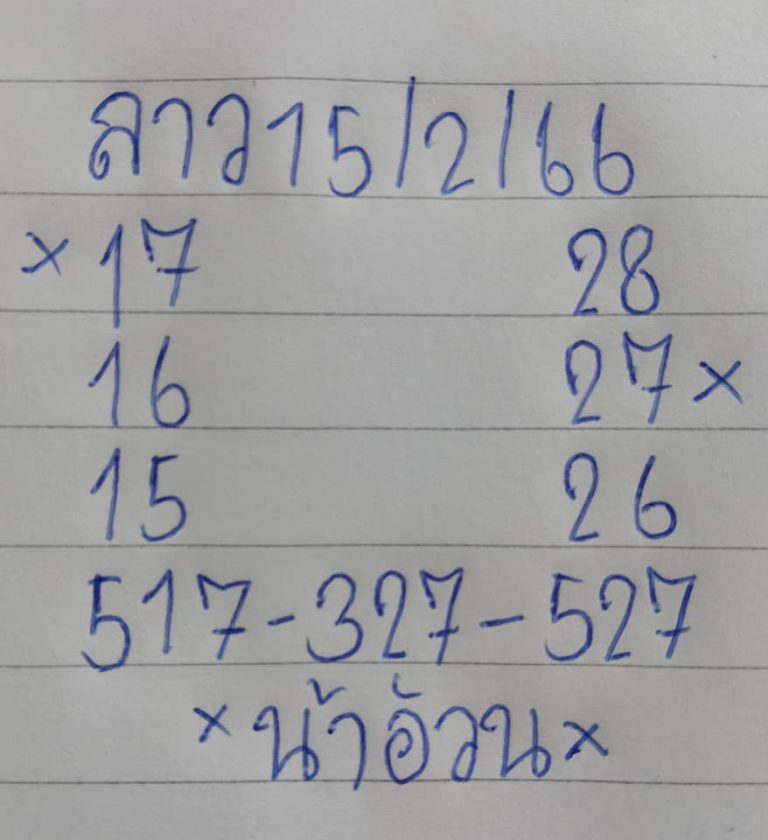 ลาว15/2/66
×17 28
16 27×
15 26
517-327-527
×น้าอ้วน×